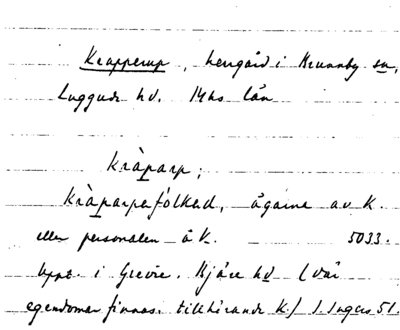 Krapperup, herrgård i Brunnby sn,
Luggude hd. Mhs län
kràparp;
kràparpafólked, ägarne av K.
eller personalen å K. 5033.
Uppt. i Grevie. Bjäre hd (där
egendomar finnas tillhörande K.) I. Ingers 51.